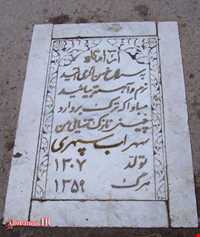 به سراغ من اگر می آیید
نرم و آهسته بیایید
مبادا که ترک بردارد
چینی نازک تنهایی من
سهراب سپهری
تولد ۱۳۰۷
مرگ ۱۳۵۹